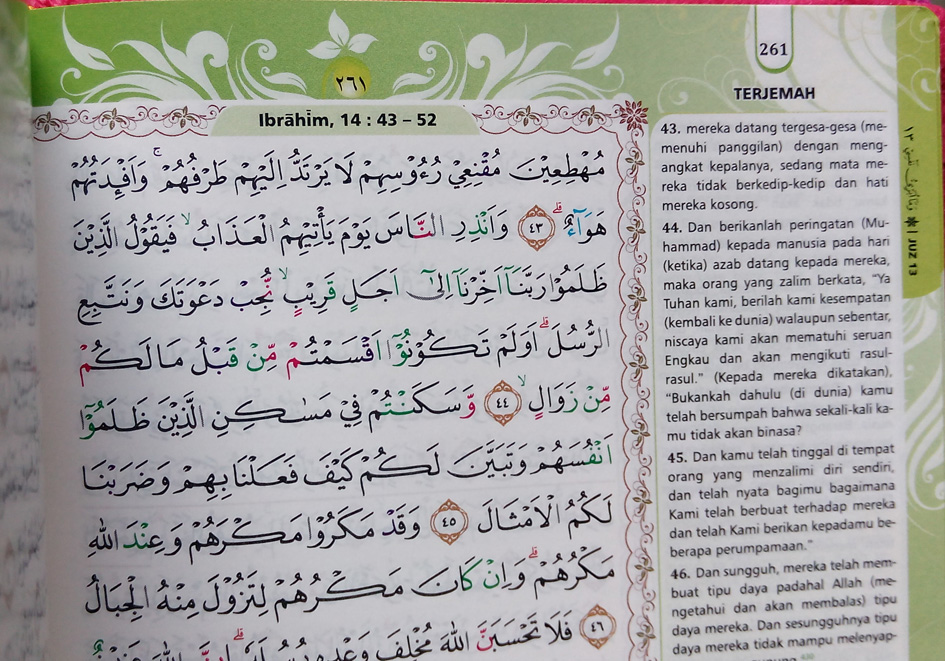 ٢٦١
Ibrāhīm, 14 : 43 – 52
مُهْطِعِيْنَ مُقْنِعِيْ رُءُوْسِهِمْ لَا يَرْتَدُّ اِلَيْهِمْ طَرْفُهُمْ ۚ وَاَفْـِٕدَتُهُمْ
هَوَاۤءٌ ۗ ٤٣ وَاَنْذِرِ النَّاسَ يَوْمَ يَأْتِيْهِمُ الْعَذَابُ ۙ فَيَقُوْلُ الَّذِيْنَ
ظَلَمُوْا رَبَّنَآ اَخِّرْنَآ اِلٰٓى اَجَلٍ قَرِيْبٍ ۙ نُّجِبْ دَعْوَتَكَ وَنَتَّبِعِ
الرُّسُلَ ۗ اَوَلَمْ تَكُوْنُوْٓا اَقْسَمْتُمْ مِّنْ قَبْلُ مَا لَكُمْ
مِّنْ زَوَالٍ ۙ ٤٤ وَّسَكَنْتُمْ فِيْ مَسٰكِنِ الَّذِيْنَ ظَلَمُوْٓا
اَنْفُسَهُمْ وَتَبَيَّنَ لَكُمْ كَيْفَ فَعَلْنَا بِهِمْ وَضَرَبْنَا
لَكُمُ الْاَمْثَالَ ٤٥ وَقَدْ مَكَرُوْا مَكْرَهُمْ وَعِنْدَ اللّٰهِ
مَكْرُهُمْ ۗ وَاِنْ كَانَ مَكْرُهُمْ لِتَزُوْلَ مِنْهُ الْجِبَالُ
٤٦ فَلَا تَحْسَبَنَّ اللّٰهَ مُخْلِفَ وَعْدِهٖ
261
TERJEMAH
43. mereka datang tergesa-gesa (me-
menuhi panggilan) dengan meng-
angkat kepalanya, sedang mata me-
reka tidak berkedip-kedip dan hati
mereka kosong.
44. Dan berikanlah peringatan (Mu-
hammad) kepada manusia pada hari
(ketika) azab datang kepada mereka,
maka orang yang zalim berkata, "Ya
Tuhan kami, berilah kami kesempatan
(kembali ke dunia) walaupun sebentar,
niscaya kami akan mematuhi seruan
Engkau dan akan mengikuti rasul-
rasul." (Kepada mereka dikatakan),
"Bukankah dahulu (di dunia) kamu
telah bersumpah bahwa sekali-kali ka-
mu tidak akan binasa?
45. Dan kamu telah tinggal di tempat
orang yang menzalimi diri sendiri,
dan telah nyata bagimu bagaimana
Kami telah berbuat terhadap mereka
dan telah Kami berikan kepadamu be-
berapa perumpamaan."
46. Dan sungguh, mereka telah mem-
buat tipu daya padahal Allah (me-
ngetahui dan akan membalas) tipu
daya mereka. Dan sesungguhnya tipu
daya mereka tidak mampu melenyap-
JUZ 13